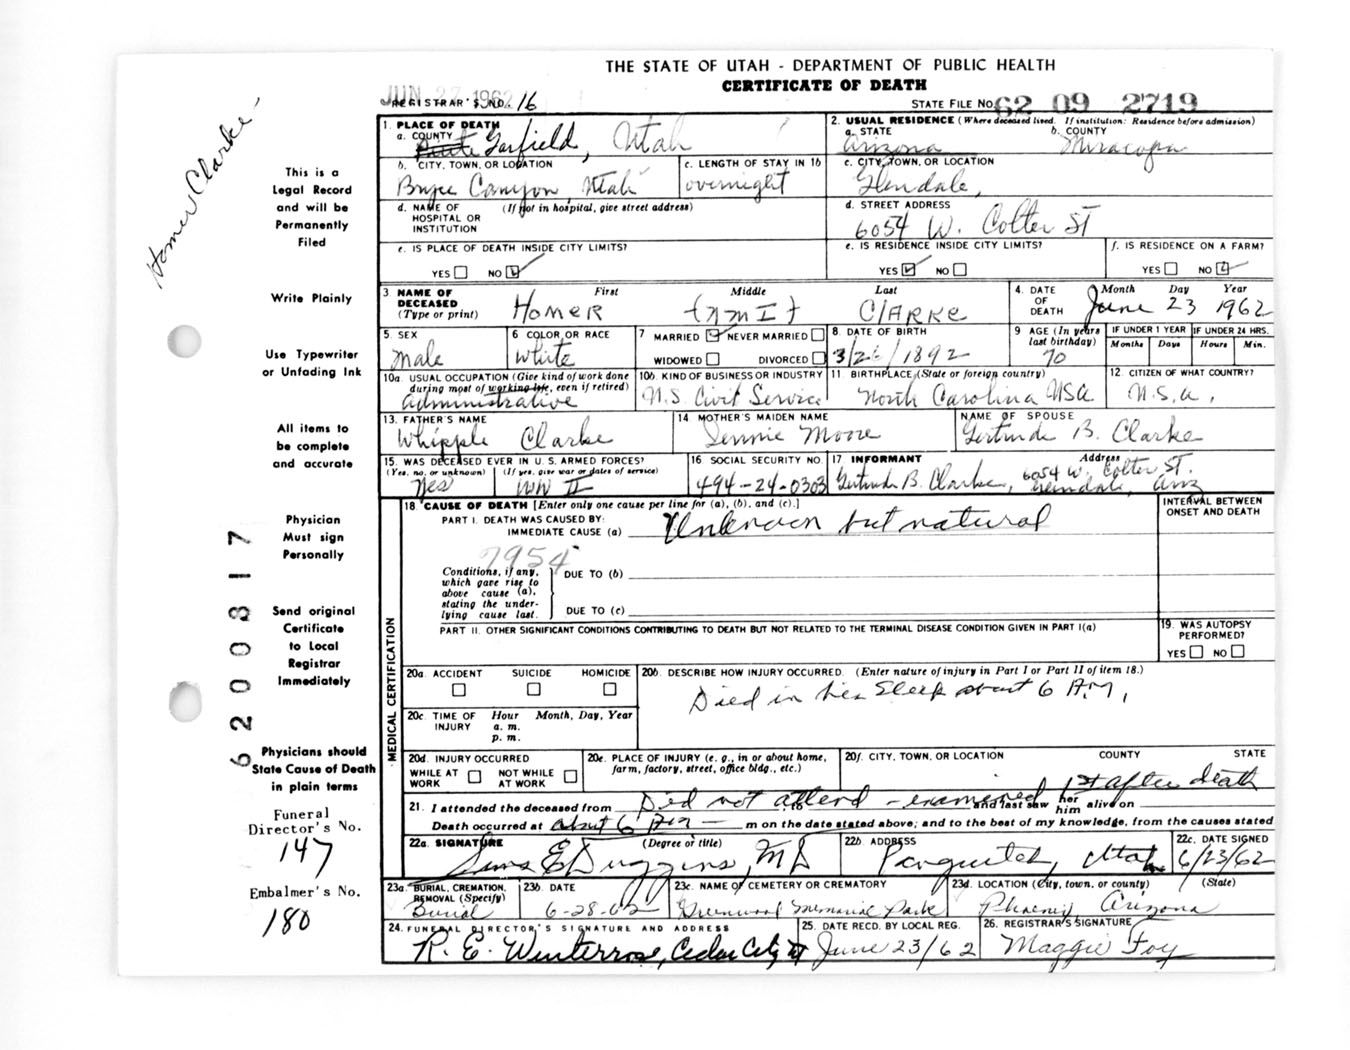 THE STATE OF UTAH - DEPARTMENT OF PUBLIC HEALTH
CERTIFICATE OF DEATH
JUN 27 1962
REGISTRAR'S NO. 16
STATE FILE NO. 62 09 2719
Homer Clarke
This is a
Legal Record
and will be
Permanently
Filed
Write Plainly
Use Typewriter
or Unfading Ink
All items to
be complete
and accurate
Physician
Must sign
Personally
Send original
Certificate
to Local
Registrar
Immediately
Physicians should
State Cause of Death
in plain terms
Funeral
Director's No.
147
Embalmer's No.
180
6200817
1. PLACE OF DEATH
a. COUNTY
Garfield, Utah
2. USUAL RESIDENCE (Where deceased lived. If institution: Residence before admission)
a. STATE b. COUNTY
Arizona Miracopa
b. CITY, TOWN, OR LOCATION
Bryce Canyon Utah
c. LENGTH OF STAY IN 1b
overnight
c. CITY, TOWN, OR LOCATION
Glendale,
d. NAME OF HOSPITAL OR INSTITUTION (If not in hospital, give street address)
d. STREET ADDRESS
6054 W. Colter ST
e. IS PLACE OF DEATH INSIDE CITY LIMITS?
YES NO
e. IS RESIDENCE INSIDE CITY LIMITS?
YES NO
f. IS RESIDENCE ON A FARM?
YES NO
3. NAME OF DECEASED (Type or print)
First Middle Last
HOMER (NMI) CLARKE
4. DATE OF DEATH
Month Day Year
June 23 1962
5 SEX
Male
6 COLOR OR RACE
White
7 MARRIED NEVER MARRIED
WIDOWED DIVORCED
8. DATE OF BIRTH
3/26/1892
9 AGE (In years last birthday)
70
IF UNDER 1 YEAR IF UNDER 24 HRS.
Months Days Hours Min.
10a. USUAL OCCUPATION (Give kind of work done during most of working life, even if retired)
administrative
10b. KIND OF BUSINESS OR INDUSTRY
U.S. Civil Service
11 BIRTHPLACE (State or foreign country)
North Carolina USA
12. CITIZEN OF WHAT COUNTRY?
U.S.A.
13. FATHER'S NAME
Whipple Clarke
14 MOTHER'S MAIDEN NAME
Jennie Moore
NAME OF SPOUSE
Gertrude B. Clarke
15. WAS DECEASED EVER IN U.S. ARMED FORCES?
(Yes, no, or unknown) (If yes, give war or dates of service)
Yes WW II
16 SOCIAL SECURITY NO.
494-24-0303
17 INFORMANT Address
Gertrude B. Clarke, 6054 W. Colter ST.
Glendale, Ariz
18. CAUSE OF DEATH [Enter only one cause per line for (a), (b), and (c).]
INTERVAL BETWEEN ONSET AND DEATH
PART I. DEATH WAS CAUSED BY:
IMMEDIATE CAUSE (a) Unknown but natural
7954
Conditions, if any, which gave rise to above cause (a), stating the underlying cause last.
DUE TO (b)
DUE TO (c)
PART II. OTHER SIGNIFICANT CONDITIONS CONTRIBUTING TO DEATH BUT NOT RELATED TO THE TERMINAL DISEASE CONDITION GIVEN IN PART I(a)
19. WAS AUTOPSY PERFORMED?
YES NO
MEDICAL CERTIFICATION
20a. ACCIDENT SUICIDE HOMICIDE
20b. DESCRIBE HOW INJURY OCCURRED. (Enter nature of injury in Part I or Part II of item 18.)
Died in his sleep about 6 A.M.
20c. TIME OF INJURY Hour Month, Day, Year
a. m.
p. m.
20d. INJURY OCCURRED
WHILE AT WORK NOT WHILE AT WORK
20e. PLACE OF INJURY (e. g., in or about home, farm, factory, street, office bldg., etc.)
20f. CITY, TOWN, OR LOCATION COUNTY STATE
21. I attended the deceased from Did not attend - examined 1st after death to and last saw her him alive on
Death occurred at about 6 AM m on the date stated above; and to the best of my knowledge, from the causes stated
22a. SIGNATURE (Degree or title)
Sims E Duggins, MD
22b. ADDRESS
Panguitch, Utah
22c. DATE SIGNED
6/23/62
23a. BURIAL, CREMATION, REMOVAL (Specify)
Burial
23b. DATE
6-28-62
23c. NAME OF CEMETERY OR CREMATORY
Greenwood Memorial Park
23d. LOCATION (City, town, or county) (State)
Phoenix Arizona
24. FUNERAL DIRECTOR'S SIGNATURE AND ADDRESS
R. E. Winterrose, Cedar City, U
25. DATE RECD. BY LOCAL REG.
June 23/62
26. REGISTRAR'S SIGNATURE
Maggie Foy